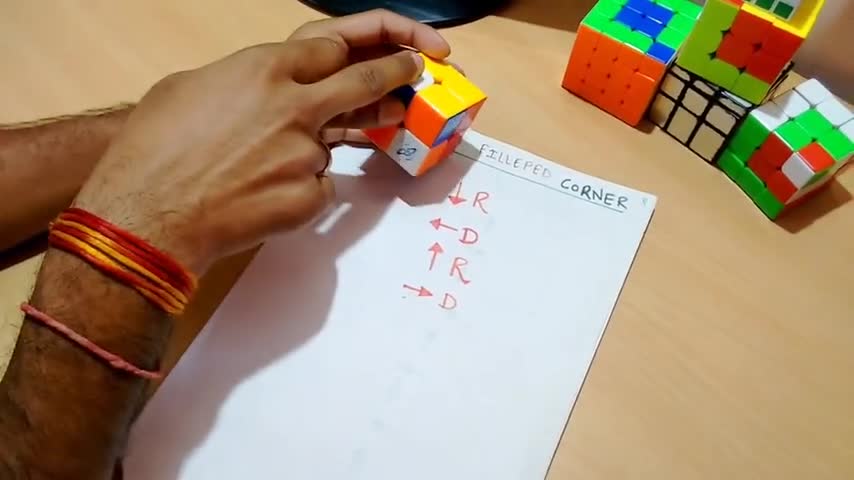 FILLEPED CORNER
↓ R
← D
↑ R
→ D